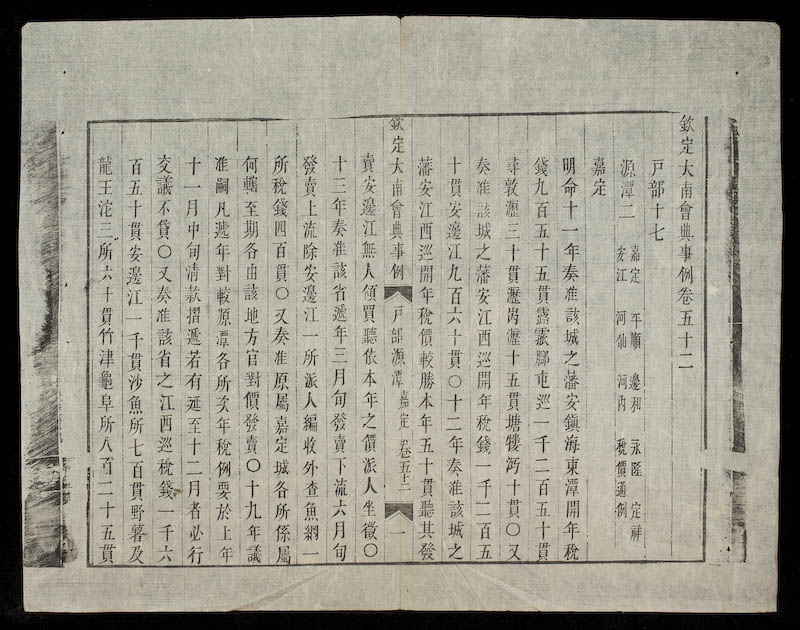 欽定大南會典事例卷五十二
戸部十七
源潭二 嘉定 平順 邊和 永隆 定祥
安江 河仙 河內 稅價通例
嘉定
明命十一年奏准該城之藩安鎮海東潭開年稅
錢九百五十五貫露霖腳屯巡一千二百五十貫
尋敦瀝三十貫瀝芮瀝十五貫塘犙沔十貫〇又
奏准該城之藩安江西巡開年稅錢一千二百五
十貫安邊江九百六十貫〇十二年奏准該城之
藩安江西巡開年稅價較勝本年五十貫聽其發
欽定大南會典事例 戸部源潭 嘉定 卷五十二 一
賣安邊江無人領買聽依本年之價派人坐徵〇
十三年奏准該省遞年三月旬發賣下流六月旬
發賣上流除安邊江一所派人編收外查魚網一
所稅錢四百貫〇又奏准原屬嘉定城各所係屬
何轄至期各由該地方官對價發賣〇十九年議
准嗣凡遞年對較原潭各所欠年稅例要於上年
十一月中旬清款摺遞若有延至十二月者必行
交議不貸〇又奏准該省之江西巡稅錢一千六
百五十貫安邊江一千貫沙魚所七百貫野暮及
龍王沱三所六十貫竹津龜阜所八百二十五貫